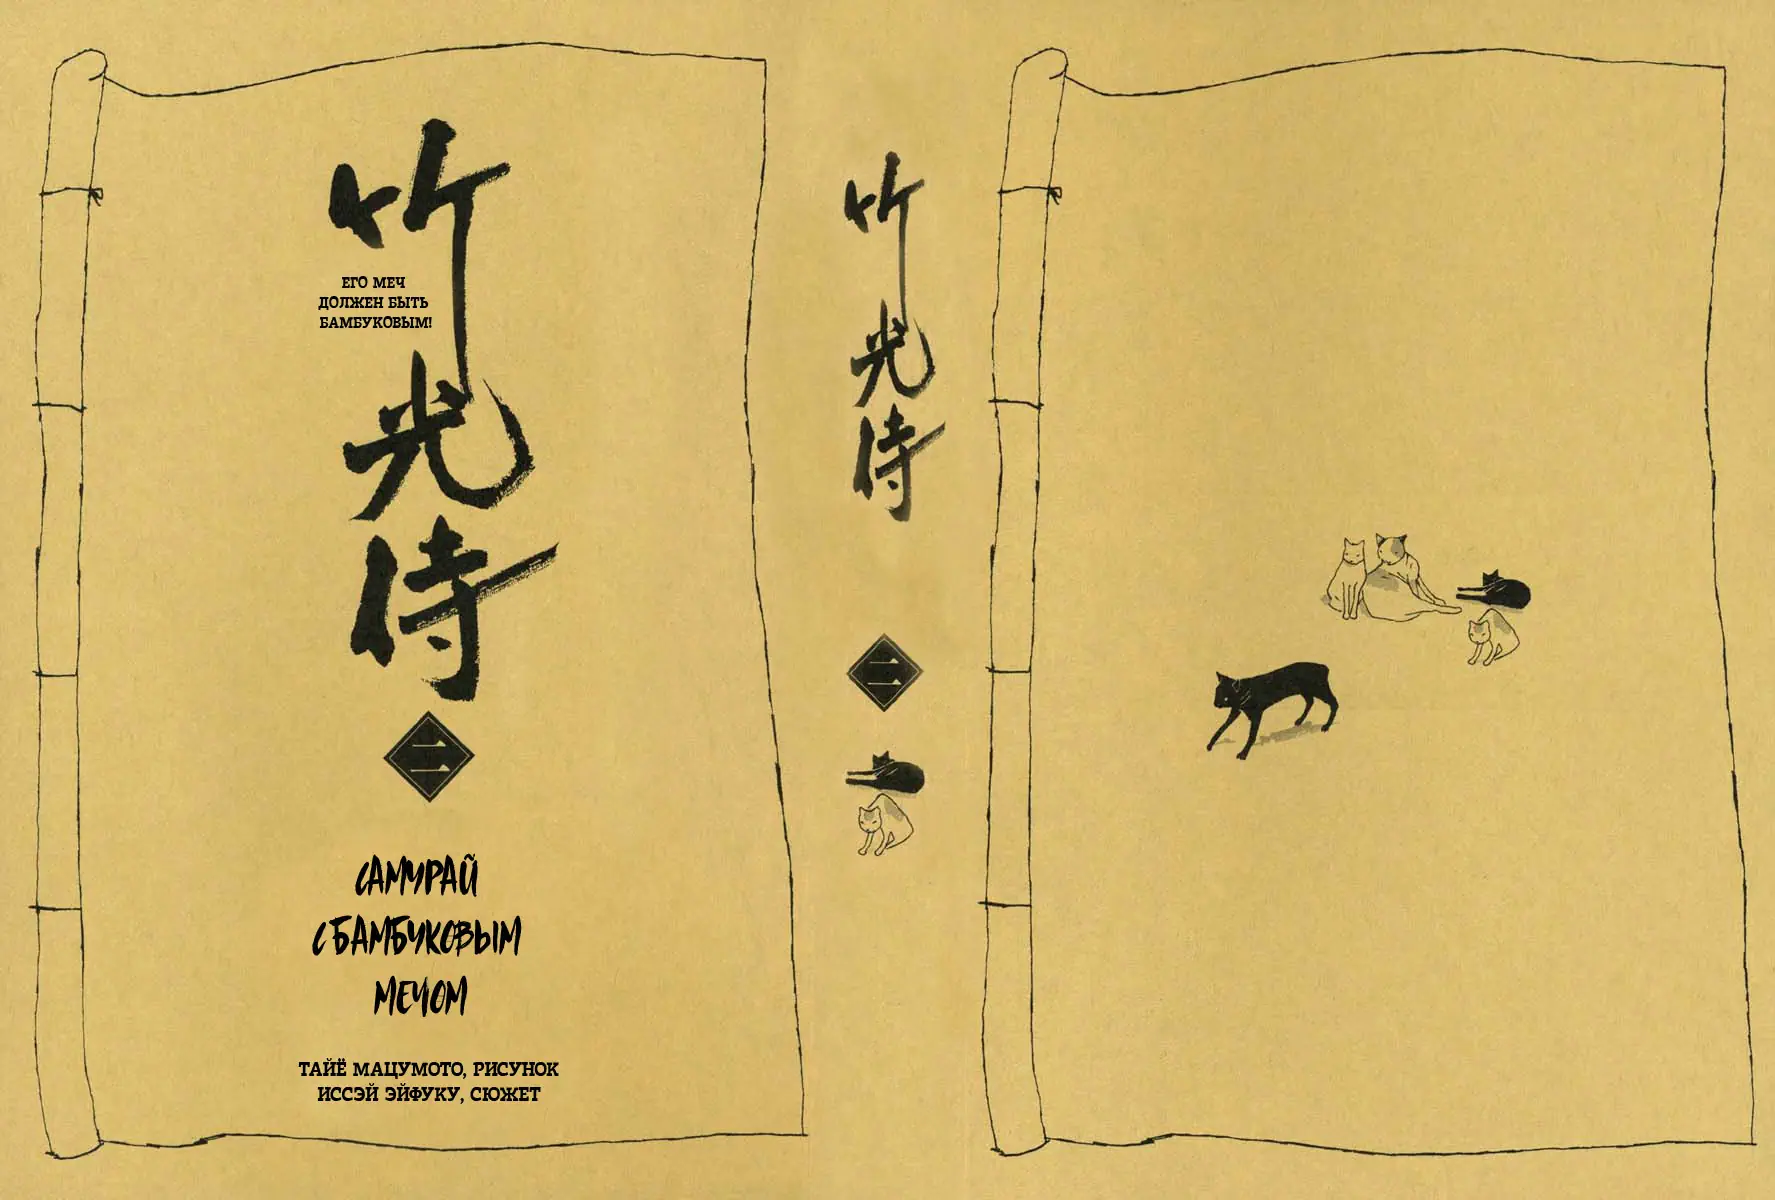 竹光侍
ЕГО МЕЧ
ДОЛЖЕН БЫТЬ
БАМБУКОВЫМ!
二
САМУРАЙ
С БАМБУКОВЫМ
МЕЧОМ
ТАЙЁ МАЦУМОТО, РИСУНОК
ИССЭЙ ЭЙФУКУ, СЮЖЕТ
竹光侍
二